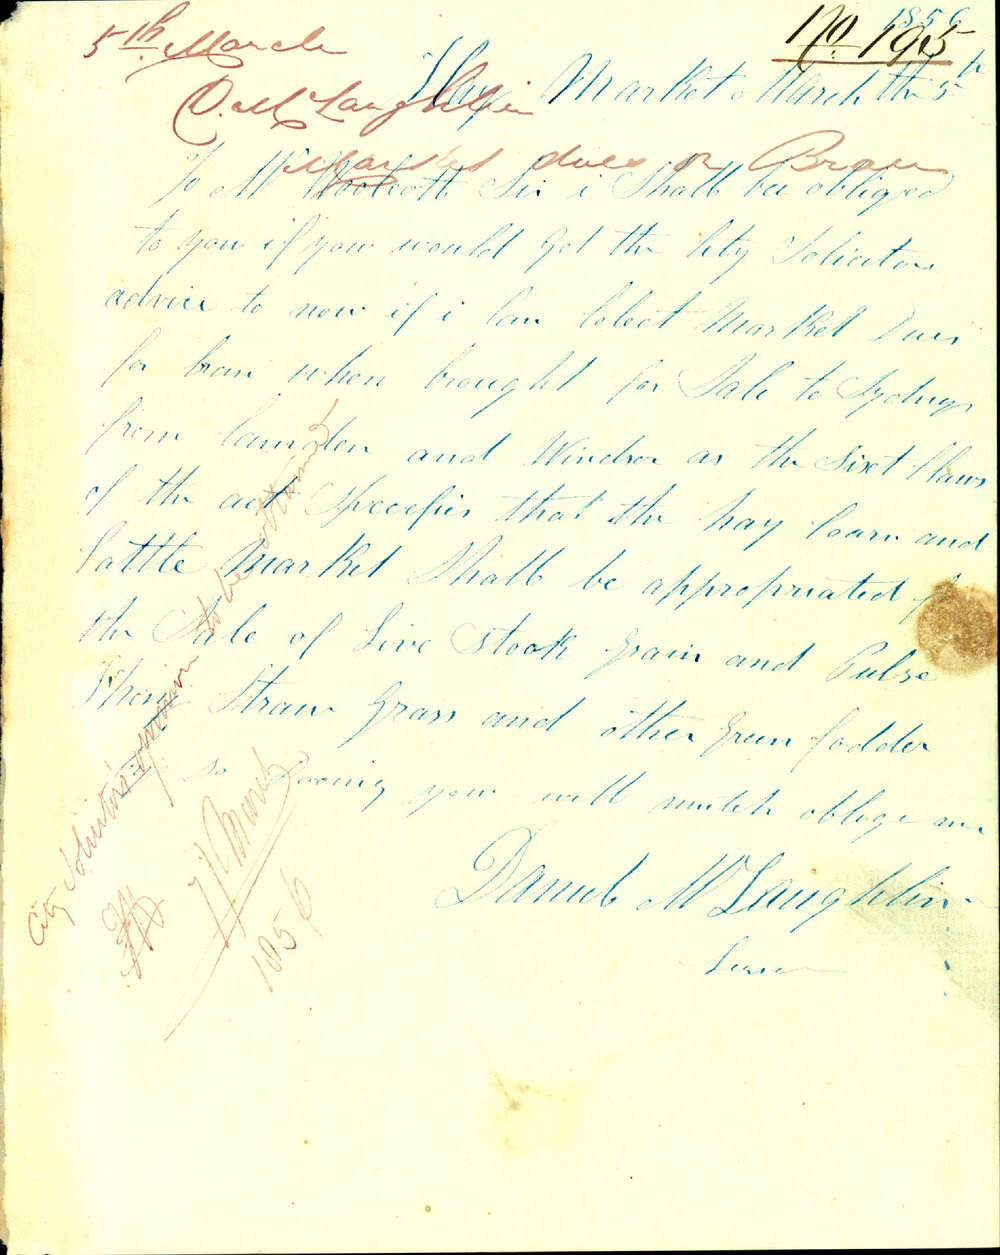 5th March
No. 195
1856
D. McLaughlin
Hay Market March the 5th
Market dues on Bran
To Mr Woolcott Sir i Shall be obliged
to you if you would Get the City Solicitors
advice to now if i Can Colect Market Dues
for bran when brought for Sale to Sydney
from Camden and Windsor as the Sixt Claus
of the act Specefies that the hay Coarn and
Cattle Market Shall be appropriated for
the Sale of Live Stook Grain and Pulse
Straw Grass and other Green fodder
so Dooing you will mutch oblige me
Daniel McLaughlin
City Solicitor's opinion to be obtained
7 March
1856